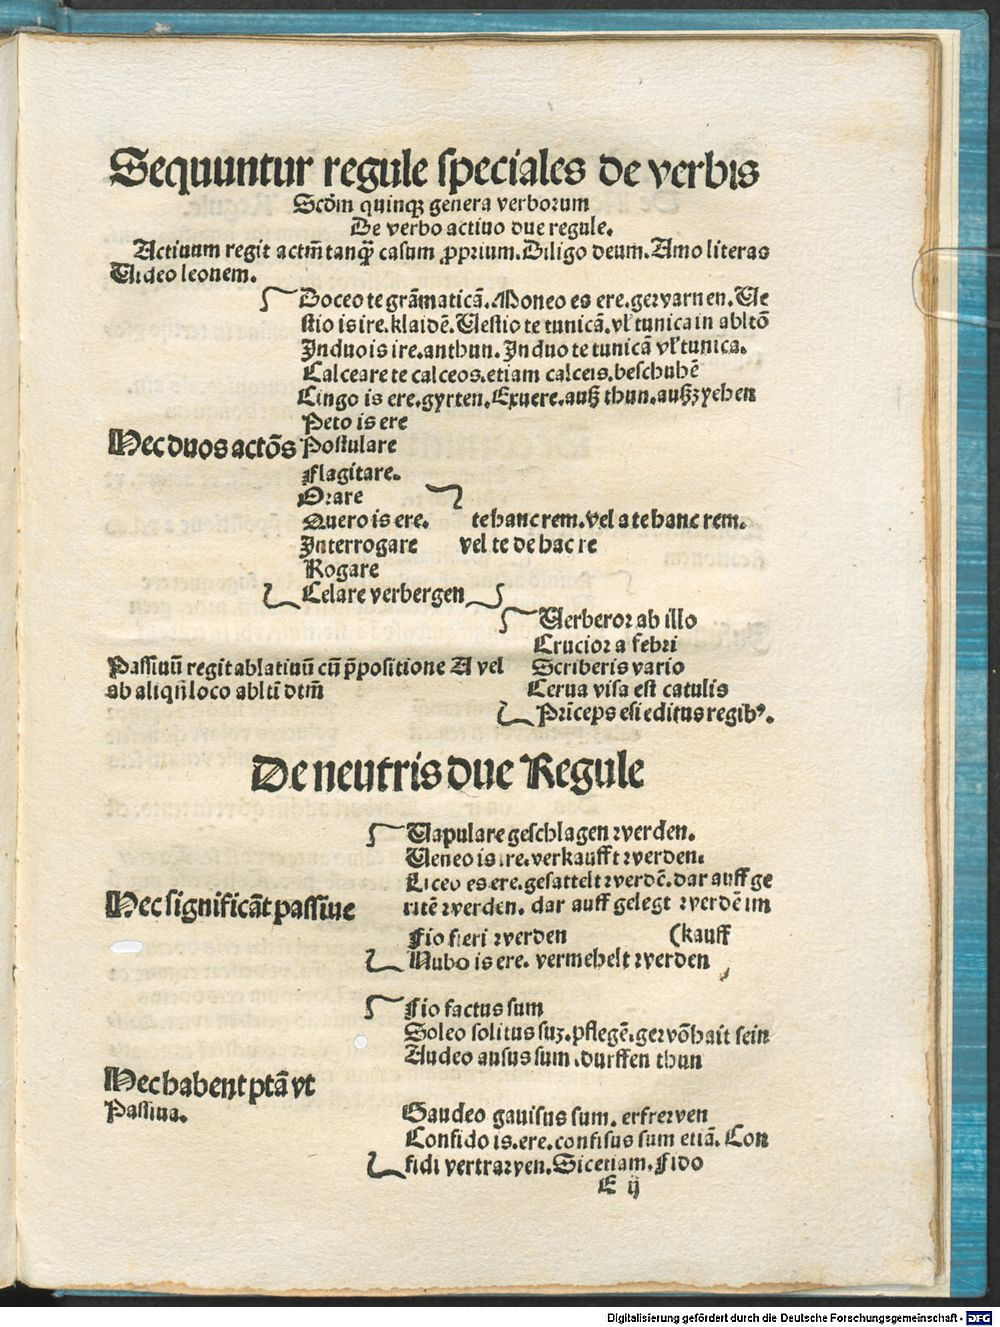 Sequuntur regule speciales de verbis
Scdm̄ quinqꝫ genera verborum
De verbo actiuo due regule.
Actiuum regit actm̄ tanqꝫ̄ casum ꝓprium. Diligo deum. Amo literas
Video leonem.
Doceo te grāmaticā. Moneo es ere. gewarnen. Ve
stio is ire. klaidē. Vestio te tunicā. vl' tunica in abltō
Induo is ire. anthun. Induo te tunicā vl' tunica.
Calceare te calceos. etiam calceis. beschuhē
Cingo is ere. gyrten. Exuere. auß thun. außzyehen
Peto is ere
Hec duos actōs Postulare
Flagitare.
Orare
Quero is ere. te hanc rem. vel a te hanc rem.
Interrogare vel te de hac re
Rogare
Celare verbergen
Verberor ab illo
Crucior a febri
Passiuū regit ablatiuū cū p̄positione A vel Scriberis vario
ab aliqn̄ loco abltī dtm̄ Cerua visa est catulis
Prīceps esi editus regibꝰ.
De neutris due Regule
Vapulare geschlagen werden.
Veneo is ire. verkaufft werden.
Liceo es ere. gesattelt werdē. dar auff ge
Hec significāt passiue ritē werden. dar auff gelegt werdē im
Fio fieri werden (kauff
Nubo is ere. vermehelt werden
Fio factus sum
Soleo solitus suꝫ. pflegē. gewōhait sein
Audeo ausus sum. durffen thun
Hec habent ptā vt
Passiua. Gaudeo gauisus sum. erfrewen
Confido is. ere. confisus sum etiā. Con
fidi vertrawen. Sic etiam. Fido
E ij
Digitalisierung gefördert durch die Deutsche Forschungsgemeinschaft - DFG